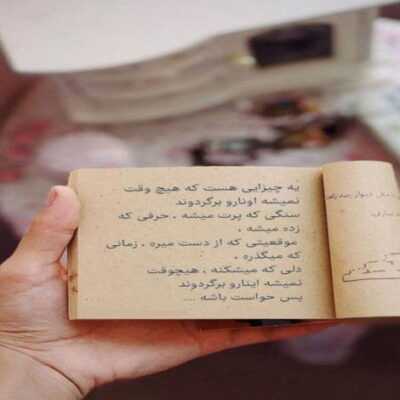 یه چیزایی هست که هیچ وقت
نمیشه اونارو برگردوند
سنگی که پرت میشه ، حرفی که
زده میشه ،
موقعیتی که از دست میره ، زمانی
که میگذره ،
دلی که میشکنه ، هیچوقت
نمیشه اینارو برگردوند
پس حواست باشه ...